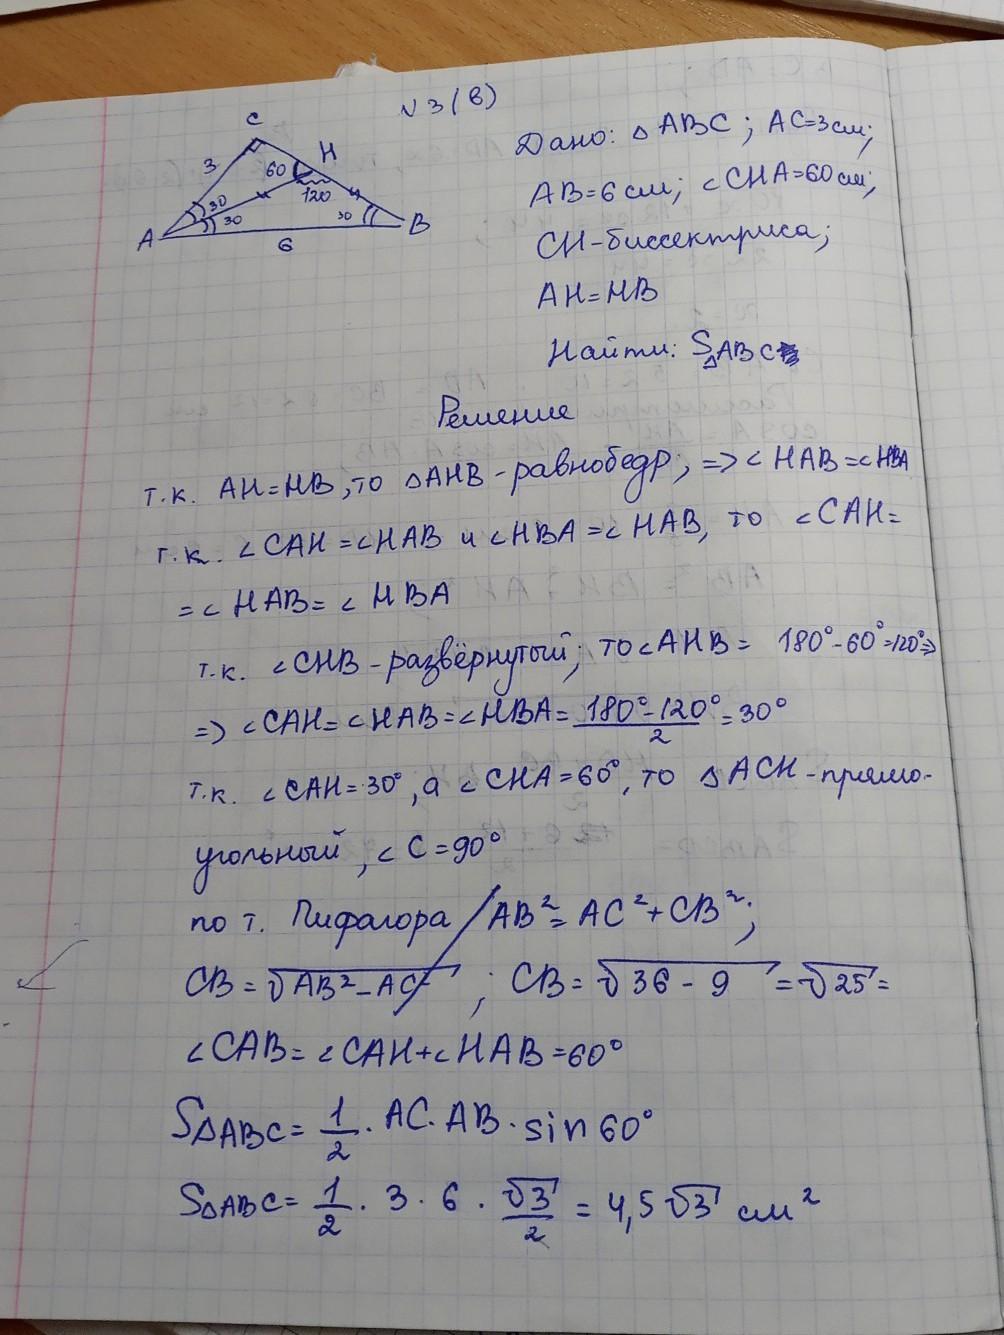 N 3(в)
C
3
H
60
30
120
30
30
A
B
6
Дано: △ ABC; AC=3см;
AB=6 см; ∠CHA=60см;
CH-биссектриса;
AH=HB
Найти: S△ABC
Решение
т.к. AH=HB, то △AHB - равнобедр; => ∠HAB=∠HBA
т.к. ∠CAH=∠HAB и ∠HBA=∠HAB, то ∠CAH=
=∠HAB=∠HBA
т.к. ∠CHB-развёрнутый; то ∠AHB= 180°-60°=120°=>
=> ∠CAH=∠HAB=∠HBA= (180°-120°)/2 =30°
т.к. ∠CAH=30°, а ∠CHA=60°, то △ACH-прямо-
угольный, ∠C=90°
по т. Пифагора AB²=AC²+CB²;
CB=√AB²-AC²; CB=√36-9=√25=
∠CAB=∠CAH+∠HAB=60°
S△ABC= 1/2 · AC·AB·sin60°
S△ABC= 1/2 · 3 · 6 · √3/2 = 4,5√3 см²